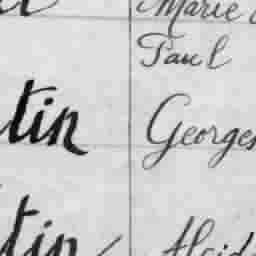 Marie
Paul
tin Georges
tin Alcid